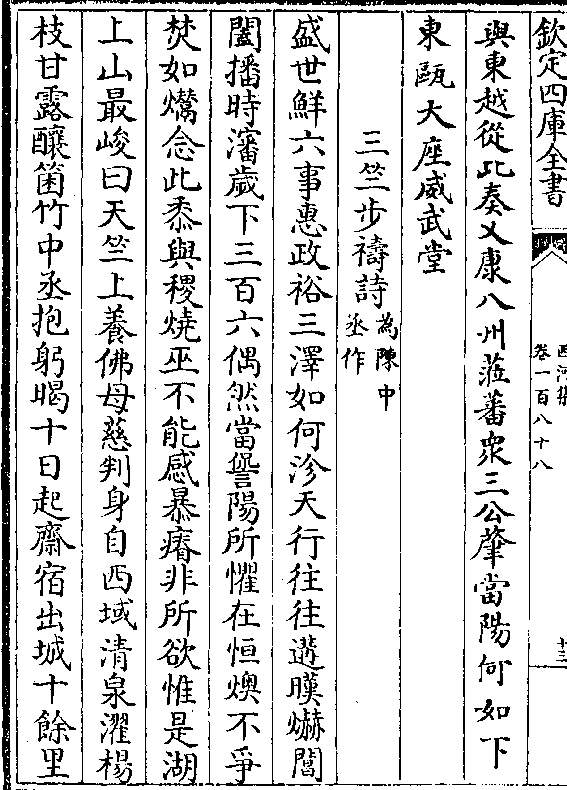 欽定四庫全書
西河集
卷一百八十八
十三
與東越從此奏乂康八州蒞蕃衆三公肇當陽何如下
東甌大座威武堂
三竺步禱詩為陳中丞作
盛世鮮六事惠政裕三澤如何沴天行往往遘暵爀閶
闔播時瀋歲下三百六偶然當譽陽所懼在恒燠不爭
焚如爦念此黍與稷燒巫不能感暴瘠非所欲惟是湖
上山最峻曰天竺上養佛母慈判身自西域清泉濯楊
枝甘露釀箘竹中丞抱躬暍十日起齋宿出城十餘里